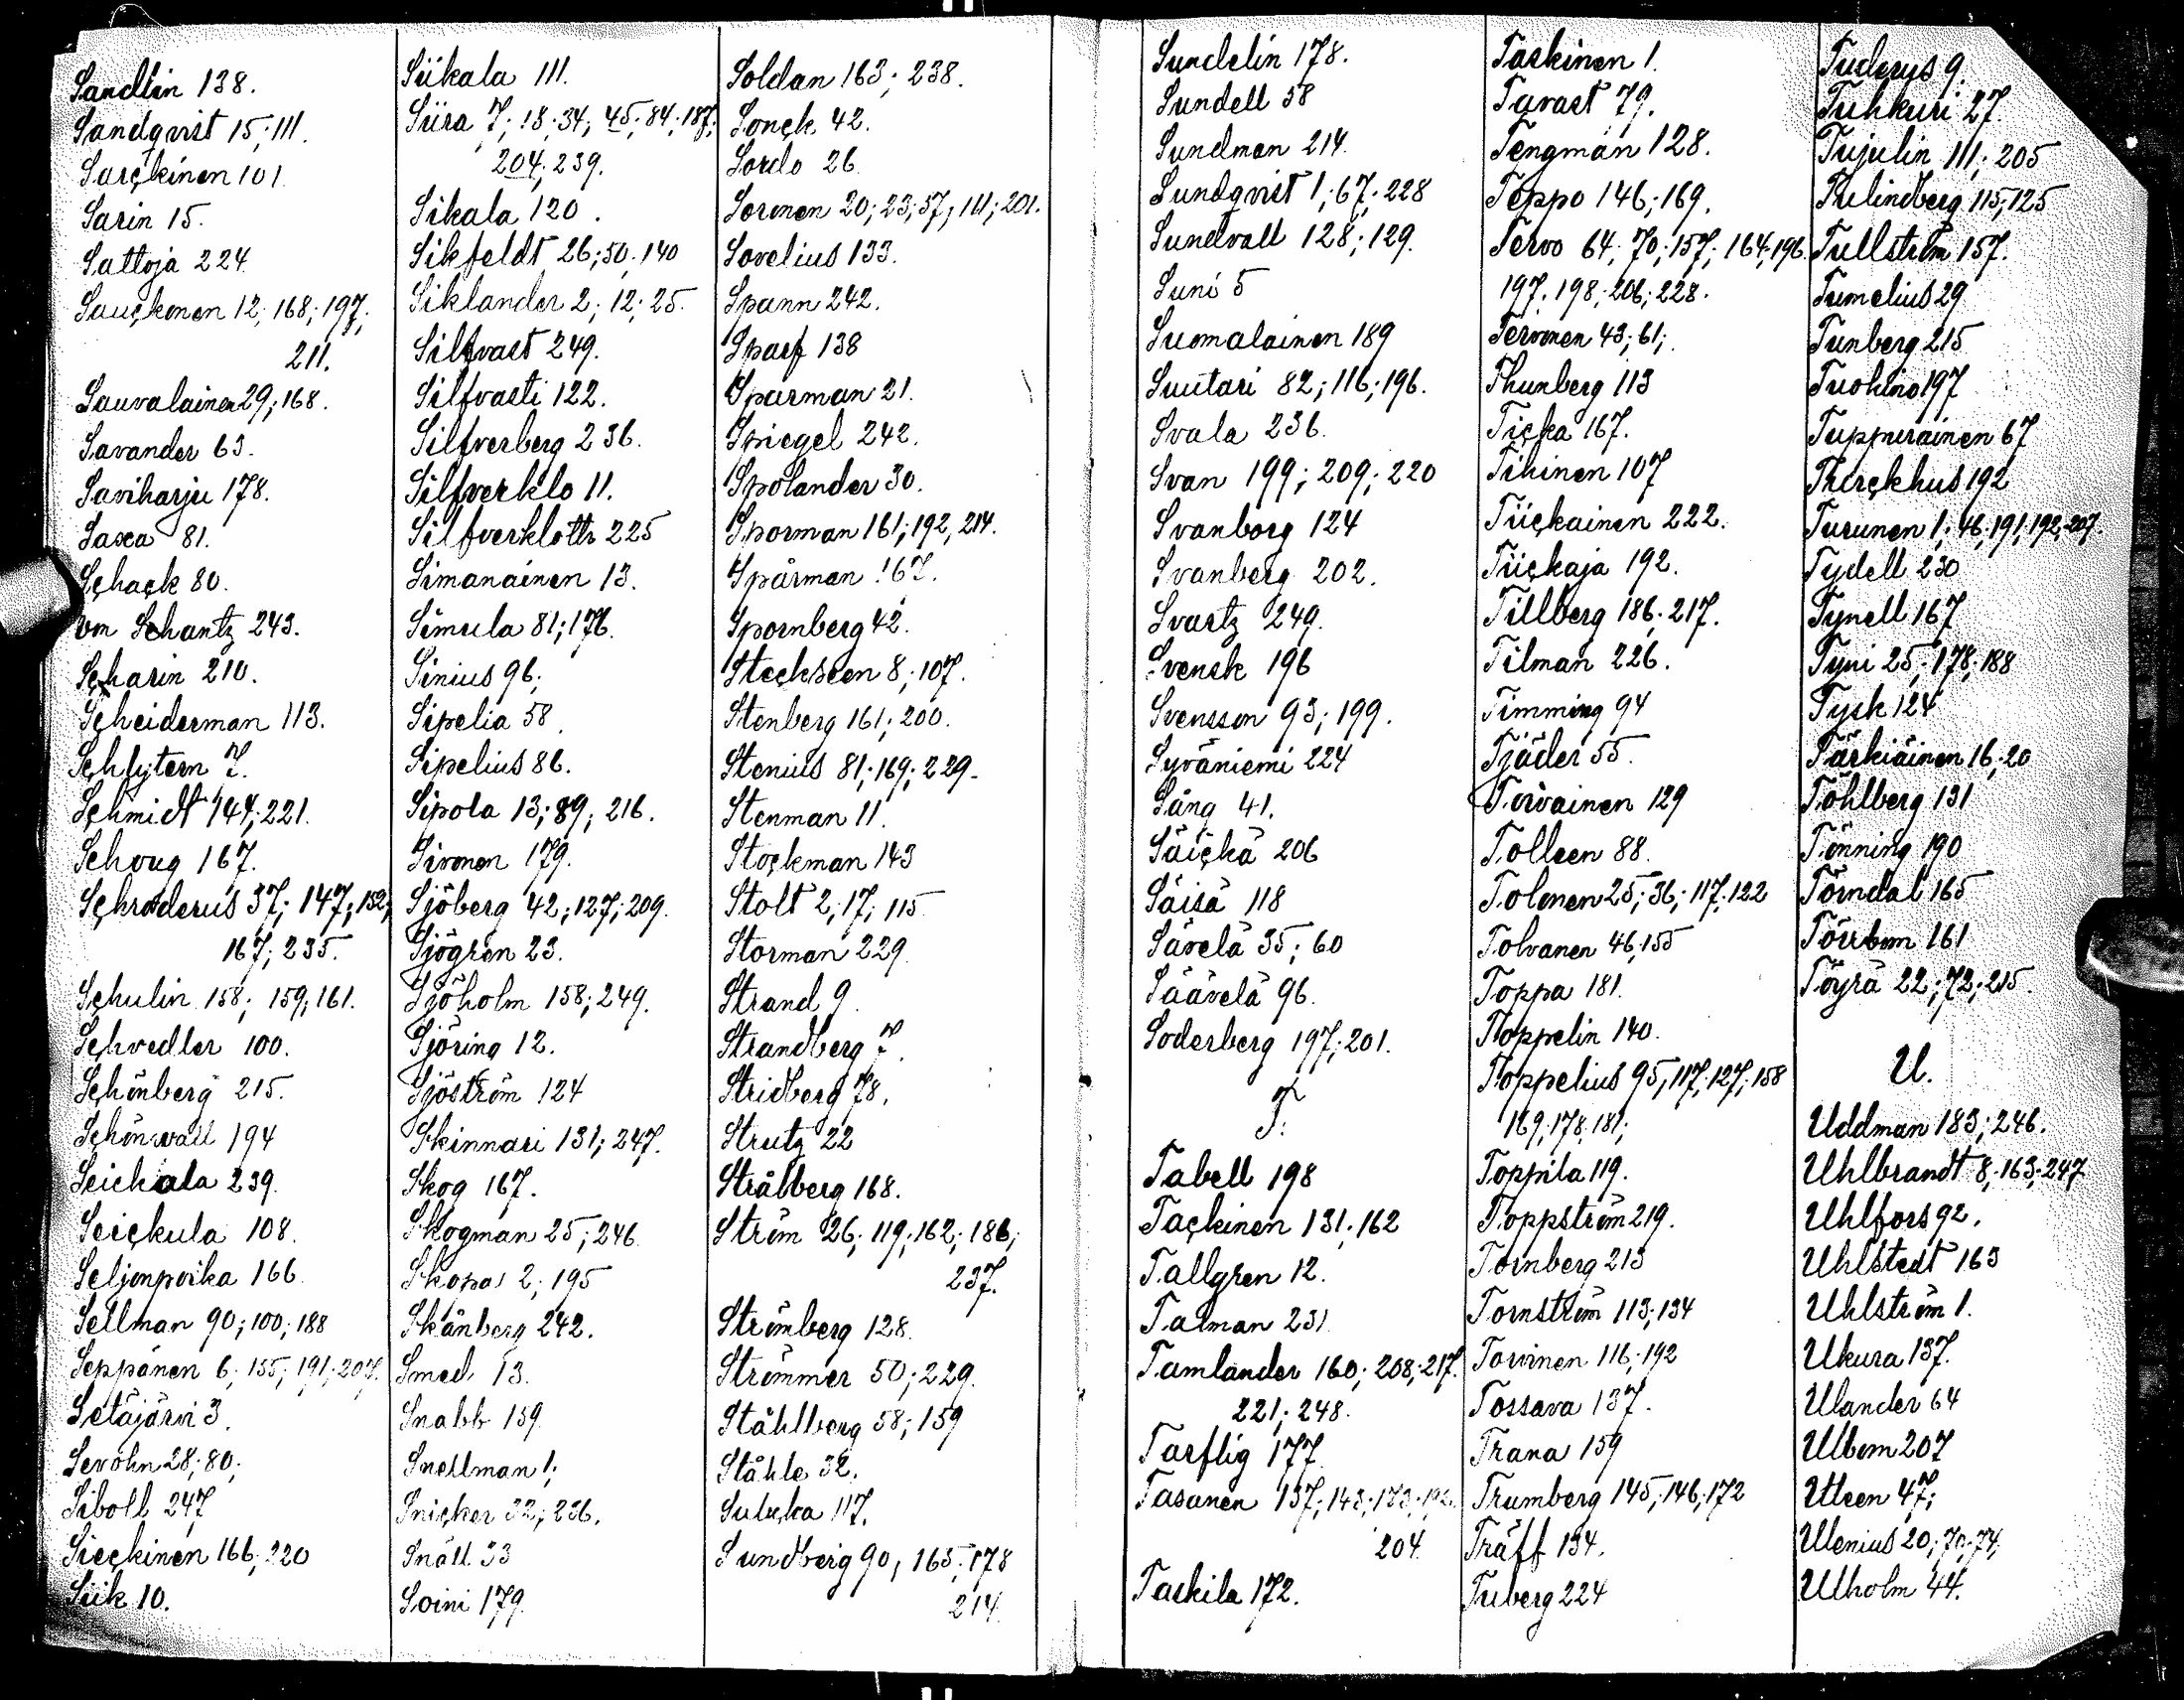 Sandlin 138.
Sandqvist 15; 111.
Sarckinen 101
Sarin 15.
Sattoja 224
Sauckonen 12; 168; 197;
211.
Sauvalainen 29; 168.
Savander 63.
Saviharju 178.
Saxa 81.
Schack 80.
von Schantz 243.
Scharin 210.
Scheiderman 113.
Schlytern 7.
Schmidt 144; 221.
Schoug 167.
Schroderus 37; 147; 152;
167; 235.
Schulin 158; 159; 161.
Schvedler 100.
Schönberg 215.
Schönvall 194
Seickala 239.
Seickula 108.
Seljonpoika 166
Sellman 90; 100; 188
Seppänen 6; 155; 191; 207.
Setäjärvi 3.
Sevohn 28; 80;
Siboll 247
Sieckinen 166; 220
Siik 10.
Siikala 111.
Siira 7; 18; 34; 45; 84; 187;
204; 239.
Sikala 120.
Sikfeldt 26; 50; 140
Siklander 2; 12; 25.
Silfvast 249.
Silfvasti 122.
Silfverberg 236.
Silfverklo 11.
Silfverklottr 225
Simanainen 13.
Simula 81; 176.
Sinius 96;
Sipelia 58
Sipelius 86.
Sipola 13; 89; 216.
Sironen 179.
Sjöberg 42; 127; 209.
Sjögren 23.
Sjöholm 158; 249.
Sjöring 12.
Sjöström 124
Skinnari 131; 247.
Skog 167.
Skogman 25; 246
Skopa 2; 195
Skånberg 242.
Smed 13.
Snabb 159
Snellman 1;
Snicker 32; 236.
Snäll 33
Soini 179.
Soldan 163; 238.
Sonck 42.
Sordo 26
Soronen 20; 23; 57; 111; 201.
Sovelius 133.
Spann 242.
Sparf 138
Sparman 21.
Spiegel 242.
Spolander 30.
Sporman 161; 192, 214.
Spårman 167.
Spornberg 42.
Steckseen 8; 107.
Stenberg 161; 200.
Stenius 81; 169; 229.
Stenman 11.
Stockman 143
Stolt 2; 17; 115
Storman 229.
Strand 9
Strandberg 7.
Stridberg 78.
Strutz 22
Strålberg 168.
Ström 26; 119; 162; 186;
237.
Strömberg 128.
Strömmer 50; 229.
Ståhlberg 58; 159
Ståhle 32.
Sulucka 117.
Sundberg 90, 165; 178
214.
Sundelin 178.
Sundell 58
Sundman 214.
Sundqvist 1; 67; 228
Sundvall 128; 129.
Suni 5
Suomalainen 189
Suutari 82; 116; 196.
Svala 236.
Svan 199; 209; 220
Svanborg 124
Svanberg 202.
Svartz 249.
Svensk 196
Svensson 93; 199.
Syväniemi 224
Sång 41.
Säickä 206
Säisä 118
Sävelä 35; 60
Säävelä 96.
Soderberg 197; 201.
T.
Tabell 198
Tackinen 131; 162
Tallgren 12.
Talman 231
Tamlander 160; 208; 217.
221; 248.
Tarflig 177
Tasanen 137; 143; 173;
204
Taskila 172.
Taskinen 1.
Tavast 79.
Tengman 128.
Teppo 146; 169.
Tervo 64; 70; 157; 164; 196.
197. 198; 206; 228.
Tervonen 43; 61;
Thunberg 113
Ticka 167.
Tihinen 107
Tiickainen 222.
Tiickaja 192.
Tillberg 186; 217.
Tilman 226.
Timming 94
Tjäder 55.
Toivainen 129
Tolleen 88.
Tolonen 25; 36; 117; 122
Tolvanen 46; 155
Toppa 181.
Toppelin 140.
Toppelius 95, 117; 127; 158
169; 178; 181;
Toppila 119.
Toppström 219.
Tornberg 213
Tornström 113; 134
Torvinen 116; 192
Tossava 137.
Trana 159
Trumberg 145; 146; 172
Träff 134.
Tuberg 224
Tuderus 9.
Tuhkuri 27.
Tujulin 111; 205
Tulindberg 115; 125
Tullström 157.
Tumelius 29
Tunberg 215
Tuohino 197
Tuppurainen 67
Turckhus 192
Turunen 1; 46; 191; 192; 207.
Tydell 230
Tynell 167
Tyni 25; 178; 188
Tysk 124
Tärkiäinen 16; 20
Töhlberg 131
Tönning 190
Törndal 165
Törrbom 161
Töyrä 22; 72; 215.
U.
Uddman 183; 246.
Uhlbrandt 8; 163; 247
Uhlfors 92.
Uhlstedt 163
Uhlström 1.
Ukura 137.
Ulander 64
Ulbom 207
Uleen 47;
Ulenius 20; 70; 74;
Ulholm 44.